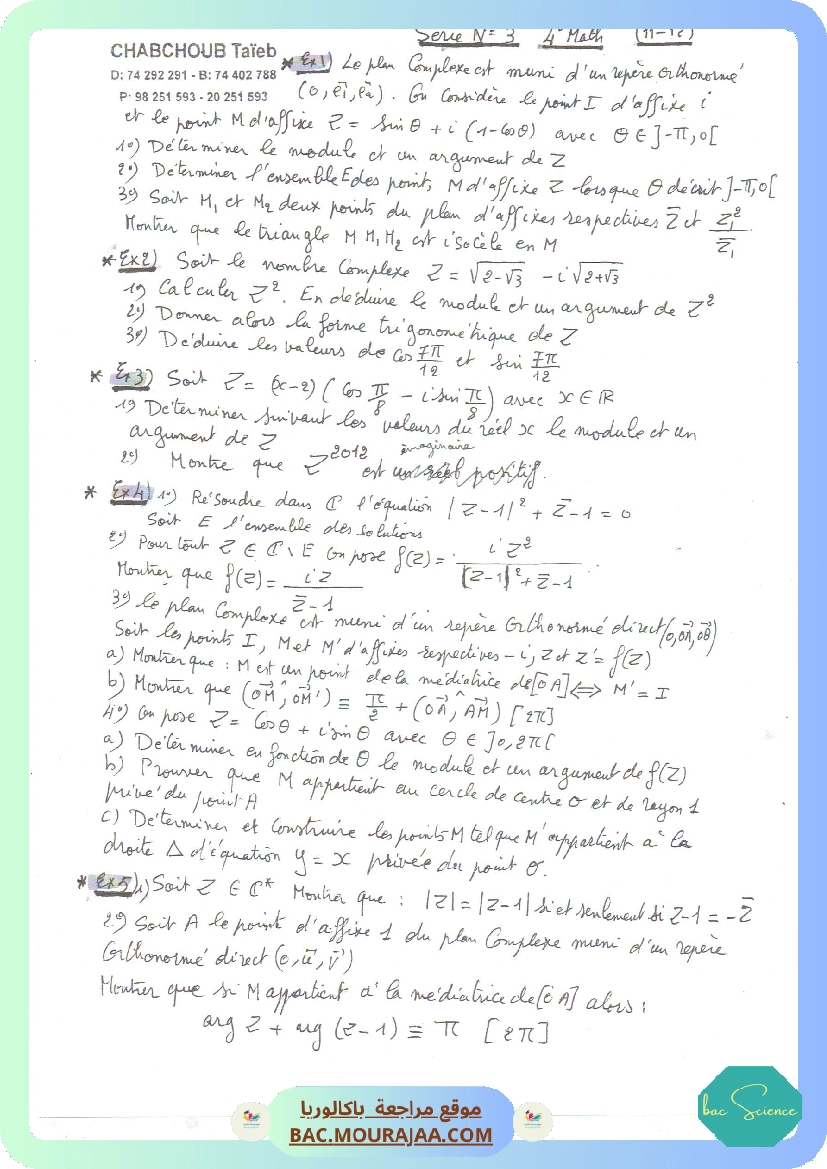 Serie N° 3 4e Math (11-12)
CHABCHOUB Taïeb
D: 74 292 291 - B: 74 402 788
P: 98 251 593 - 20 251 593
* Ex1) Le plan Complexe est muni d'un repère orthonormé
(O, e1, e2). On Considère le point I d'affixe i
et le point M d'affixe Z = sinθ + i (1-cosθ) avec θ ∈ ]-π,0[
1°) Déterminer le module et un argument de Z
2°) Déterminer l'ensemble E des points M d'affixe Z lorsque θ décrit ]-π,0[
3°) Soit M1 et M2 deux points du plan d'affixes respectives Z̄ et Z1²/Z̄1
Montrer que le triangle M M1 M2 est isocèle en M
* Ex2) Soit le nombre Complexe Z = √(2-√3) - i√(2+√3)
1°) Calculer Z². En déduire le module et un argument de Z²
2°) Donner alors la forme trigonométrique de Z
3°) Déduire les valeurs de cos 7π/12 et sin 7π/12
* Ex3) Soit Z = (x-2) (cos π/8 - i sin π/8) avec x ∈ ℝ
1°) Déterminer suivant les valeurs du réel x le module et un
argument de Z
2°) Montre que Z^2012 est imaginaire
* Ex4) 1°) Résoudre dans ℂ l'équation |Z-1|² + Z̄-1 = 0
Soit E l'ensemble des solutions
2°) Pour tout Z ∈ ℂ\E on pose f(Z) = iZ²/(|Z-1|²+Z̄-1)
Montrer que f(Z) = iZ/(Z̄-1)
3°) le plan Complexe est muni d'un repère Orthonormé direct (O,OA,OB)
Soit les points I, M et M' d'affixes respectives -i, Z et Z' = f(Z)
a) Montrer que : M est un point de la médiatrice de [OA] ⟺ M' = I
b) Montrer que (OM^, OM') ≡ π/2 + (OA^, AM) [2π]
4°) On pose Z = Cosθ + i sinθ avec θ ∈ ]0,2π[
a) Déterminer en fonction de θ le module et un argument de f(Z)
b) Prouver que M appartient au cercle de centre O et de rayon 1
privé du point A
c) Déterminer et Construire les points M tel que M' appartient à la
droite Δ d'équation y = x privée du point O.
* Ex5) 1) Soit Z ∈ ℂ* Montrer que : |Z| = |Z-1| si et seulement si Z-1 = -Z̄
2°) Soit A le point d'affixe 1 du plan Complexe muni d'un repère
Orthonormé direct (O, u, v)
Montrer que si M appartient à la médiatrice de [OA] alors :
arg Z + arg (Z-1) ≡ π [2π]
bac Science
موقع مراجعة باكالوريا
BAC.MOURAJAA.COM